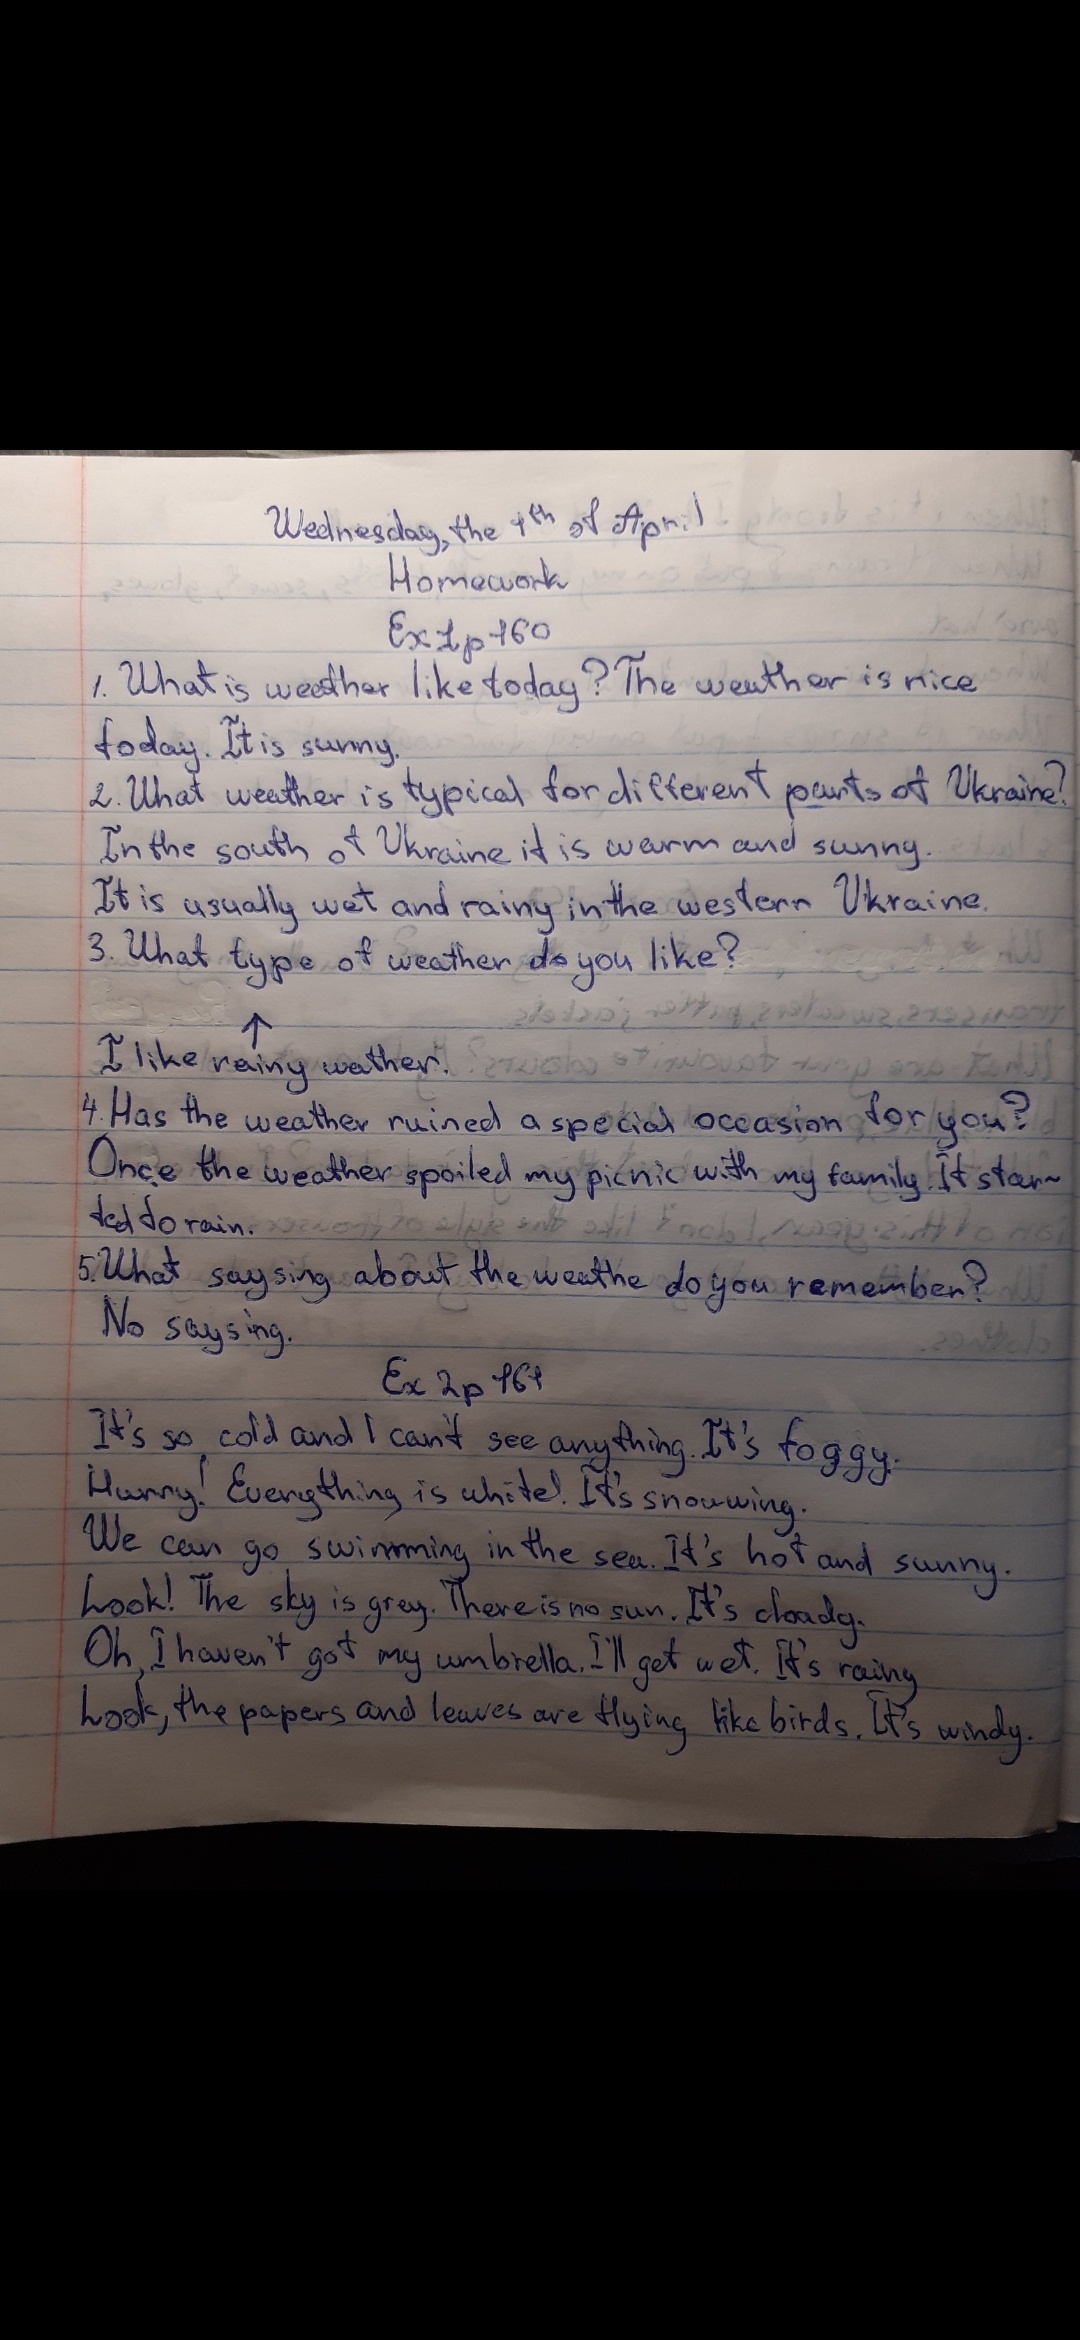 Wednesday, the 1th of April
Homework
Ex 1 p 160
1. What is weather like today? The weather is nice
today. It is sunny.
2. What weather is typical for different parts of Ukraine?
In the south of Ukraine it is warm and sunny.
It is usually wet and rainy in the western Ukraine.
3. What type of weather do you like?
↑
I like rainy wather.
4. Has the weather ruined a special occasion for you?
Once the weather spoiled my picnic with my family. It star~
ted to rain.
5. What saysing about the weathe do you remember?
No saysing.
Ex 2 p 161
It's so cold and I can't see anything. It's foggy.
Hurry! Everything is white! It's snouwing.
We can go swimming in the sea. It's hot and sunny.
Look! The sky is grey. There is no sun. It's cloady.
Oh, I haven't got my umbrella. I'll get wet. It's rainy
Look, the papers and leaves are flying like birds. It's windy.